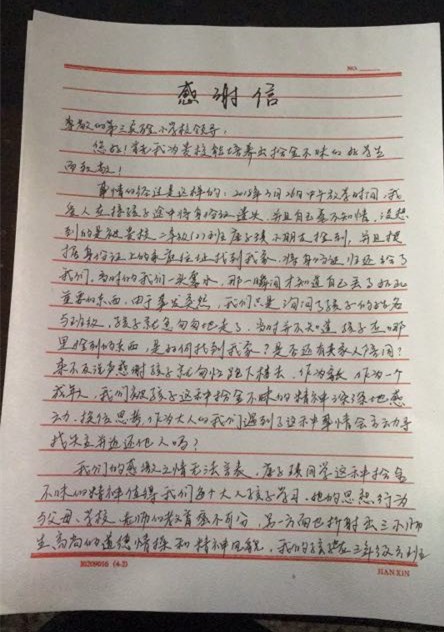 NO.
感谢信
尊敬的第三实验小学校领导:
您好!首先我为贵校能培养出拾金不昧的好学生
而致敬!
事情的经过是这样的:2018年3月26日中午放学时间,我
爱人在接孩子途中将身份证遗失,并且自己毫不知情,没想
到的是被贵校二年级(2)班座子瑛小朋友捡到,并且根
据身份证上的家庭住址找到我家,将身份证归还给了
我们,当时的我们一头雾水,那一瞬间才知道自己丢了如此
重要的东西,由于事发突然,我们只是询问了孩子的姓名
与班级,孩子就急匆匆地走了,当时并不知道,孩子在哪
里捡到的东西,是如何找到我家?是否还有其家人陪同?
来不及说声感谢孩子就匆忙跑下楼去,作为家长 作为一个
成年人,我们被孩子这种拾金不昧的精神深深地感
动,换位思考,作为大人的我们遇到了这种事情会主动寻
找失主并返还他人吗?
我们的感激之情无法言表,座子瑛同学这种拾金
不昧的精神值得我们每个大人孩子学习,她的思想行为
与父母、学校、老师的教育密不可分,另一方面也折射出三小师
生高尚的道德情操和精神风貌,我们的孩子在三年级
H209016 (4-2)
HANXIN